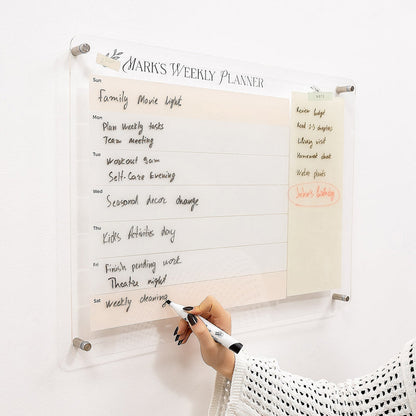 Mark's Weekly Planner
Sun
Family Movie Light
Mon
Plan weekly tasks
Team meeting
Tue
Workout 9am
Self-Care Evening
Wed
Seasonal decor change
Thu
Kid's Activities day
Fri
Finish pending work
Theatre night
Sat
Weekly cleaning
NOTE
Review budget
Read 2-3 chapters
Library visit
Homework check
Water plants
John's Birthday